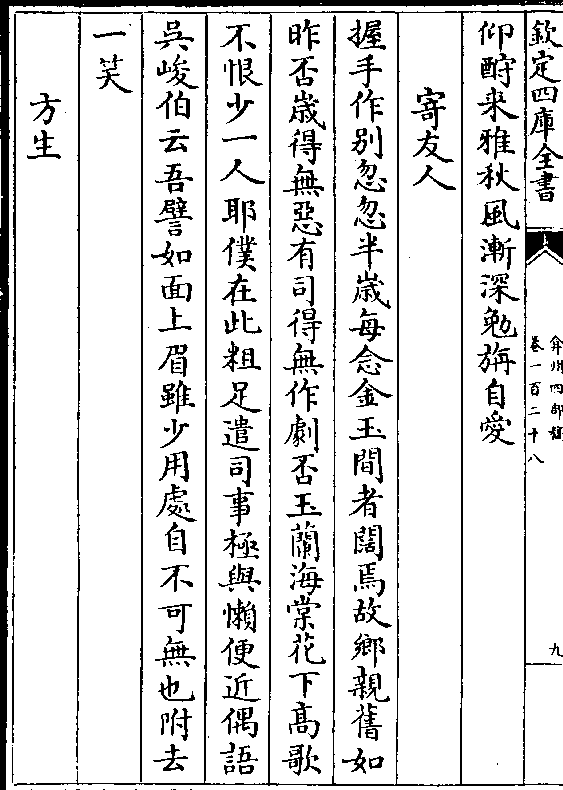 欽定四庫全書
弇州四部稿
卷一百二十八
九
仰酧来雅秋風漸深勉旃自愛
寄友人
握手作别忽忽半嵗每念金玉間者闊焉故鄉親舊如
昨否嵗得無惡有司得無作劇否玉蘭海棠花下髙歌
不恨少一人耶僕在此粗足遣司事極與懶便近偶語
吳峻伯云吾譬如面上眉雖少用處自不可無也附去
一笑
方生